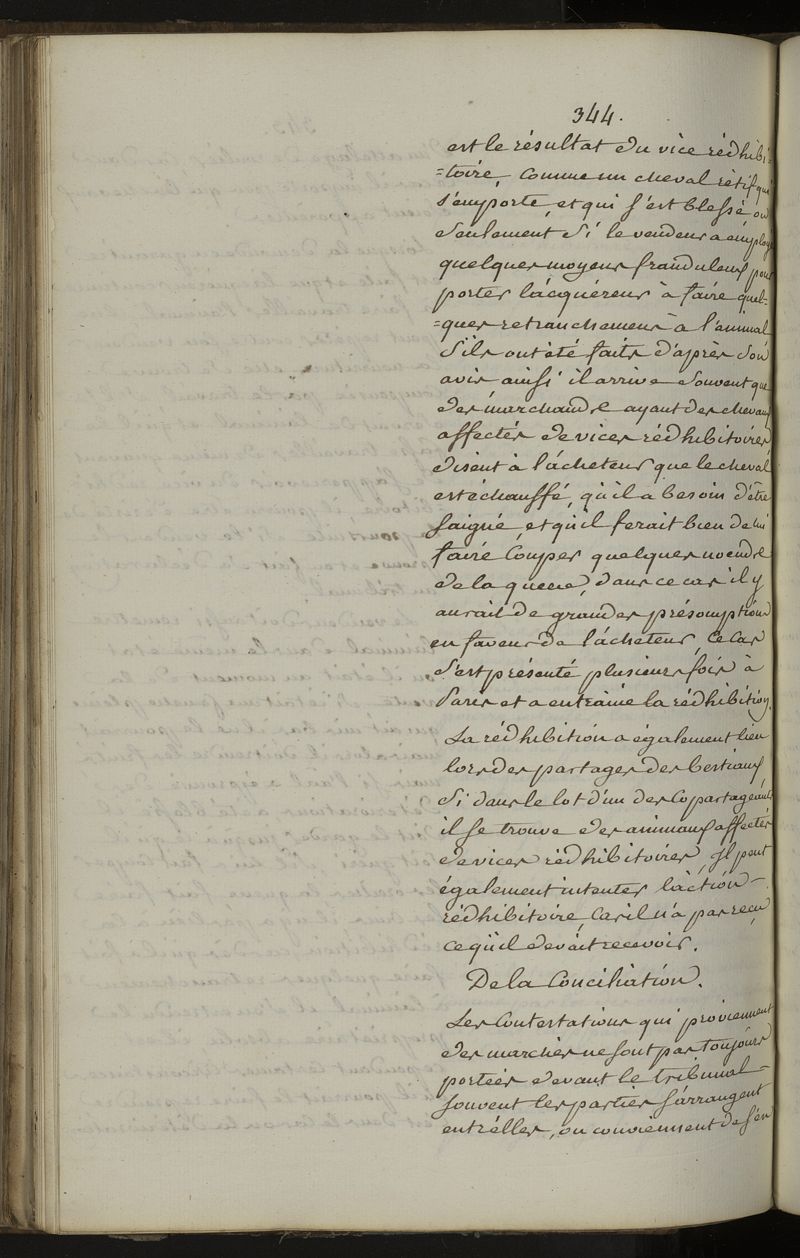 344.
est le résultat du vice rédhibi-
=toire, comme un cheval rétif qui
s'emporte, et qui s'est blessé ou
seulement si le vendeur a employé
quelques moyens frauduleux pour
porter l'acquéreur à faire quel-
=ques retranchemens à l'animal
s'ils ont été faits d'après son
avis ainsi il arrive souvent que
des marchands ayant des chevaux
affectés de vices rédhibitoires
disent à l'acheteur que le cheval
est échauffé, qu'il a besoin d'être
saigné, et qu'il ferait bien de lui
faire couper quelques noeuds
de la queue, dans ce cas il y
aurait de grandes présomptions
en faveur de l'acheteur, ce cas
s'est présenté plusieurs fois à
Paris et a entrainé la rédhibition.
La rédhibition a également lieu
lors des partages des bestiaux
si dans le lot d'un des copartageants
il se trouve des animaux affectés
de vices rédhibitoires, il peut
également intenter l'action
rédhibitoire, car il n'a pas reçu
ce qu'il devait recevoir.
De la Conciliation.
Les contestations qui proviennent
des marchés ne sont pas toujours
portées devant le tribunal
souvent les parties s'arrangent
entr'elles, ou conviennent de s'en